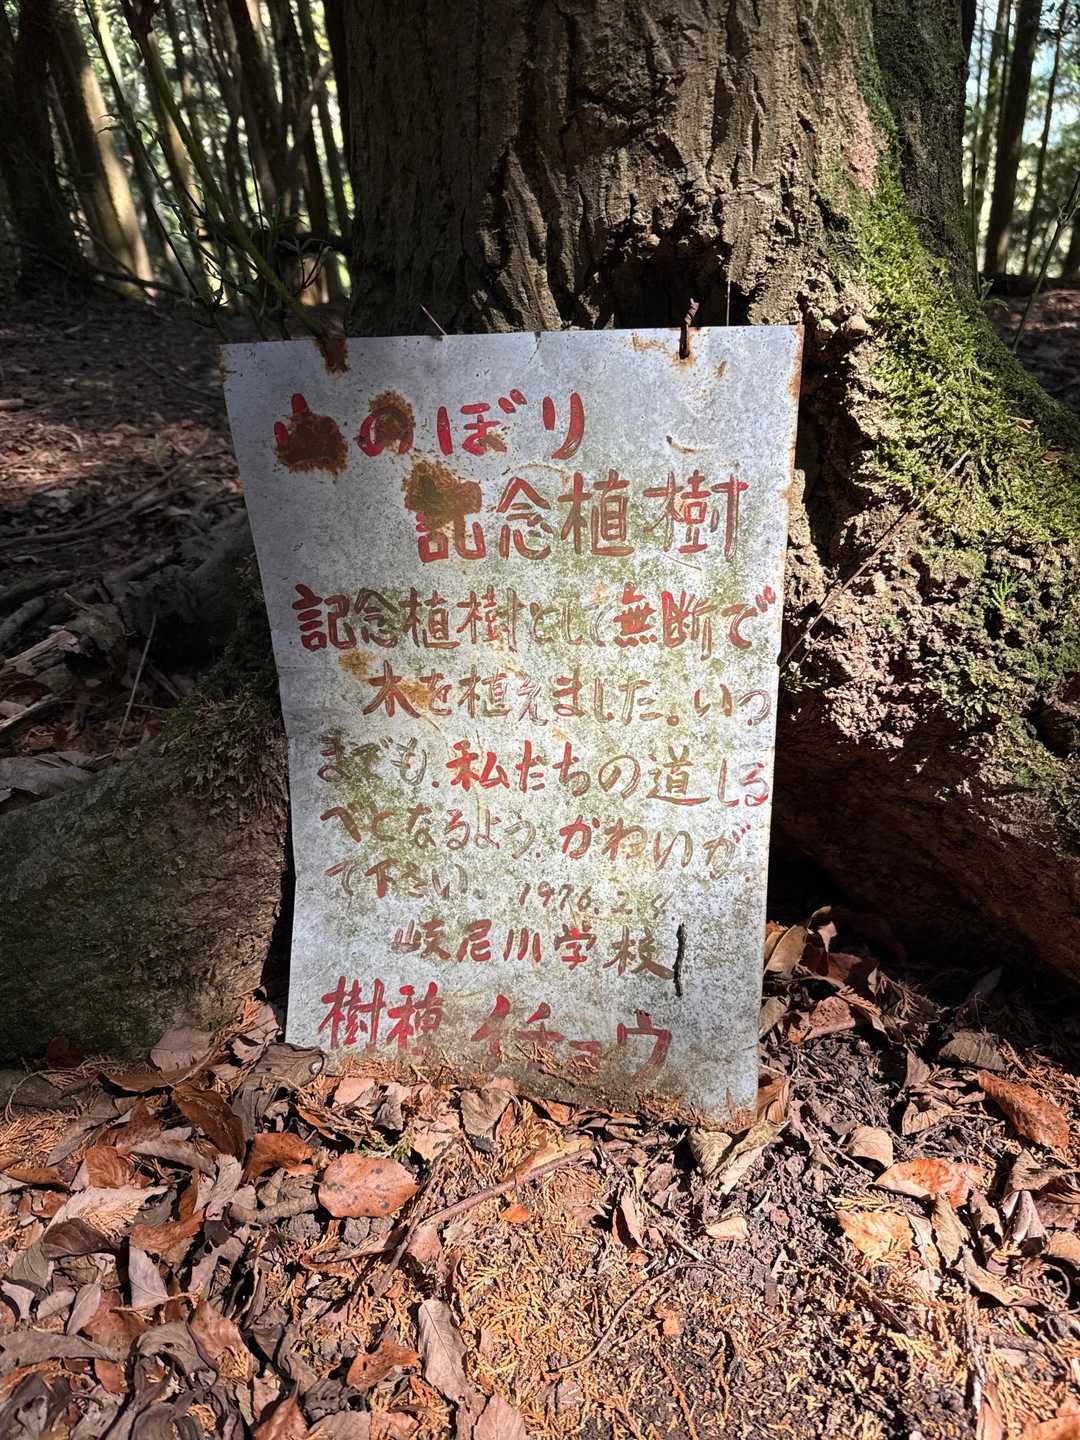 山のぼり
記念植樹
記念植樹として無断で
木を植えました。いつ
までも、私たちの道しる
べとなるよう、かわいが
て下さい。1976.2.4.
岐尼小学校
樹種 イチョウ